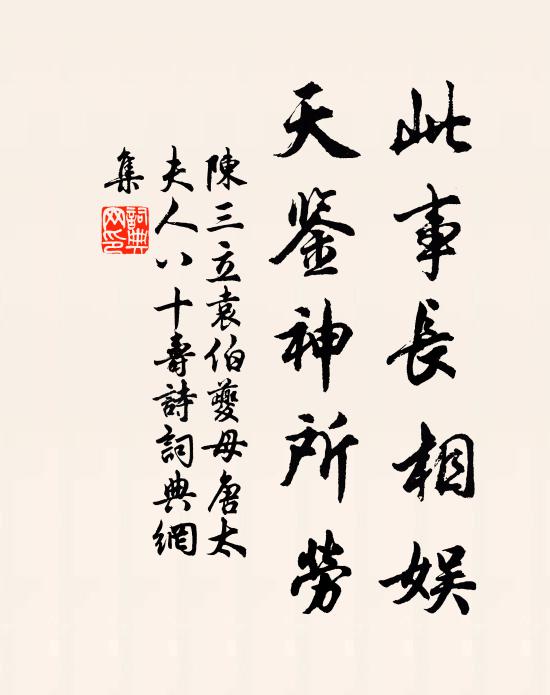 此事長相娛
天鉴神所勞
陳三立袁伯夔母唐太
夫人八十壽詩詞典網
集
詞典
网印